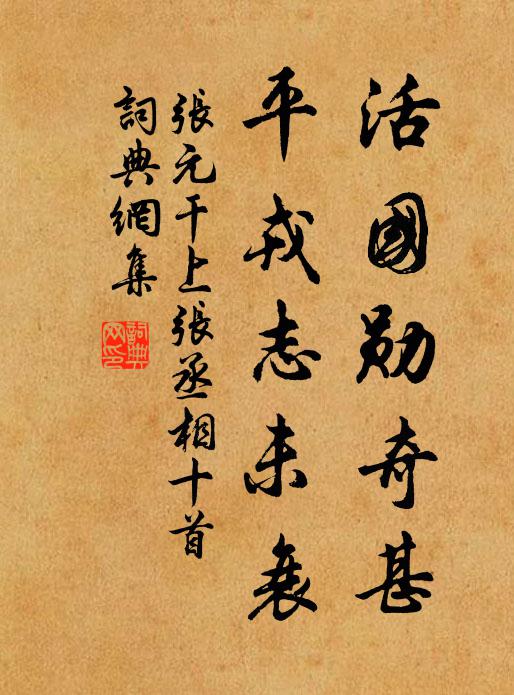 活國勛奇甚
平戎志未衰
張元干上張丞相十首
詞典網集
詞典
网印